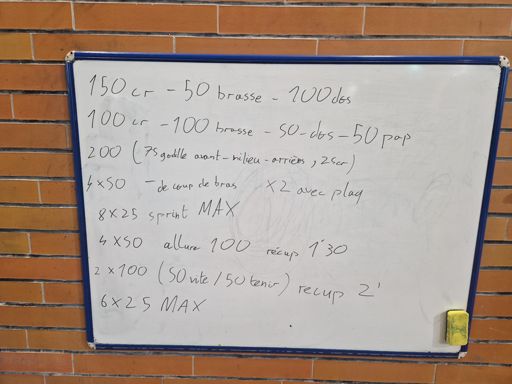 150 cr - 50 brasse - 100 dos
100 cr - 100 brasse - 50 - dos - 50 pap
200 (75 godille avant - milieu - arrière, 25 cr)
4 x 50 - de coup de bras x2 avec plaq
8 x 25 sprint MAX
4 x 50 allure 100 récup 1'30
2 x 100 (50 vite / 50 tenir) récup 2'
6 x 25 MAX